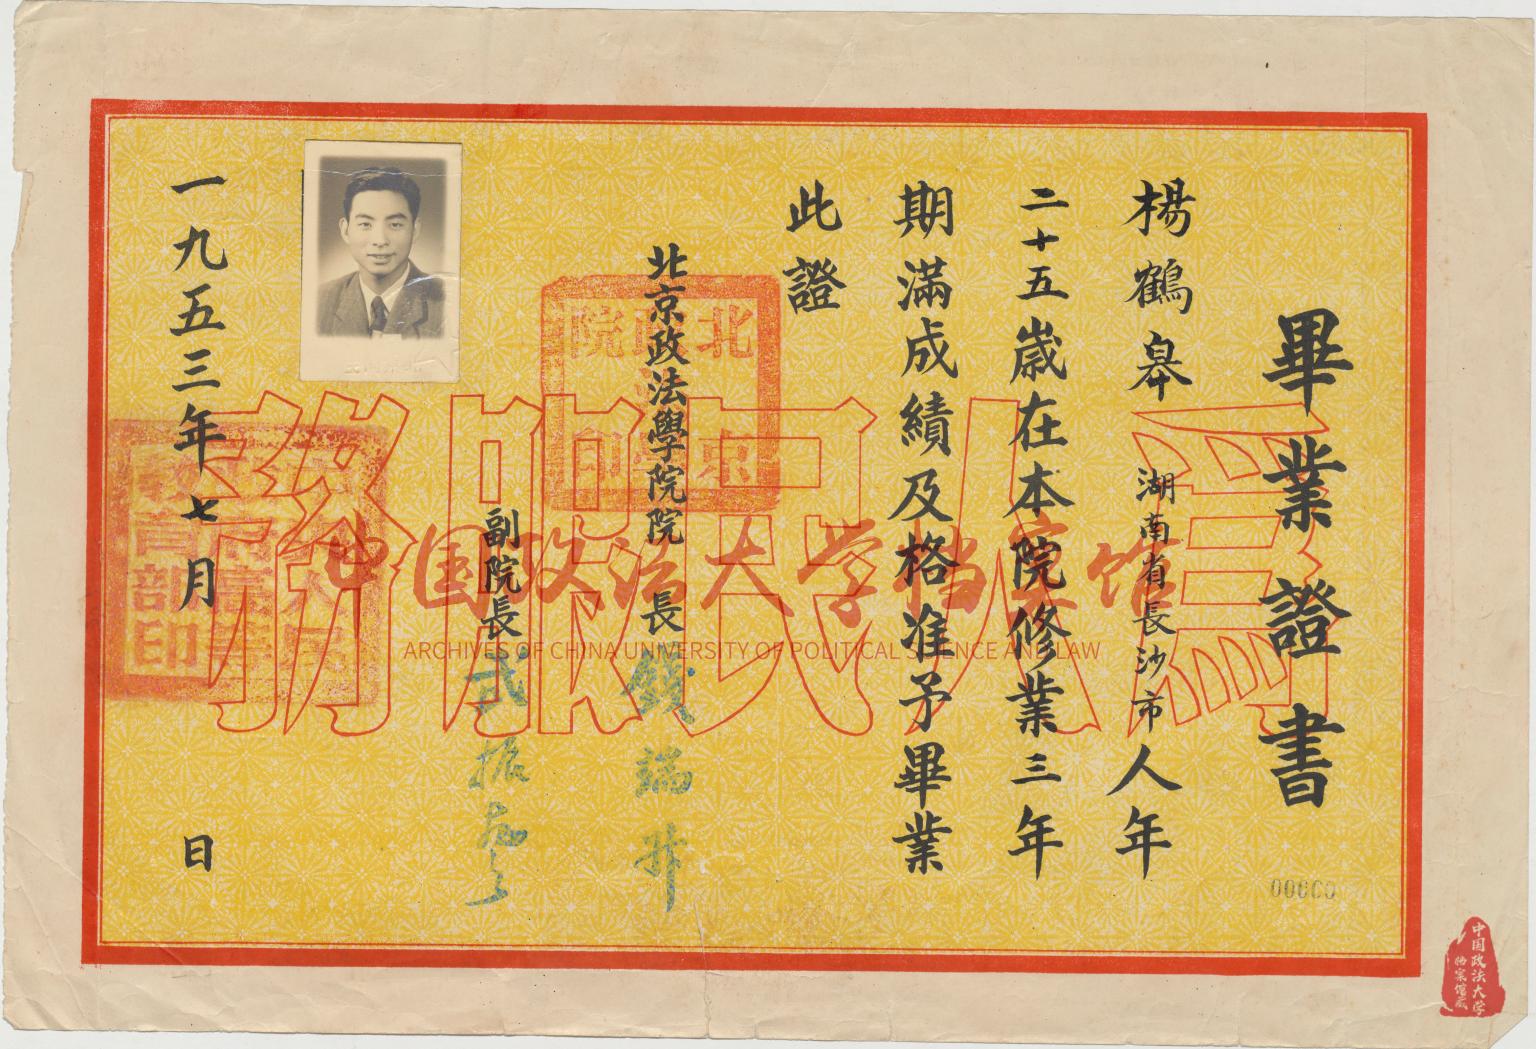 畢業證書
楊鶴皋 湖南省長沙市人年
二十五歲在本院修業三年
期滿成績及格准予畢業
此證
北京政法學院院長 錢端升
副院長
一九五三年七月 日
爲人民服務
中国政法大学档案馆
ARCHIVES OF CHINA UNIVERSITY OF POLITICAL SCIENCE AND LAW
中国政法大学
档案馆藏